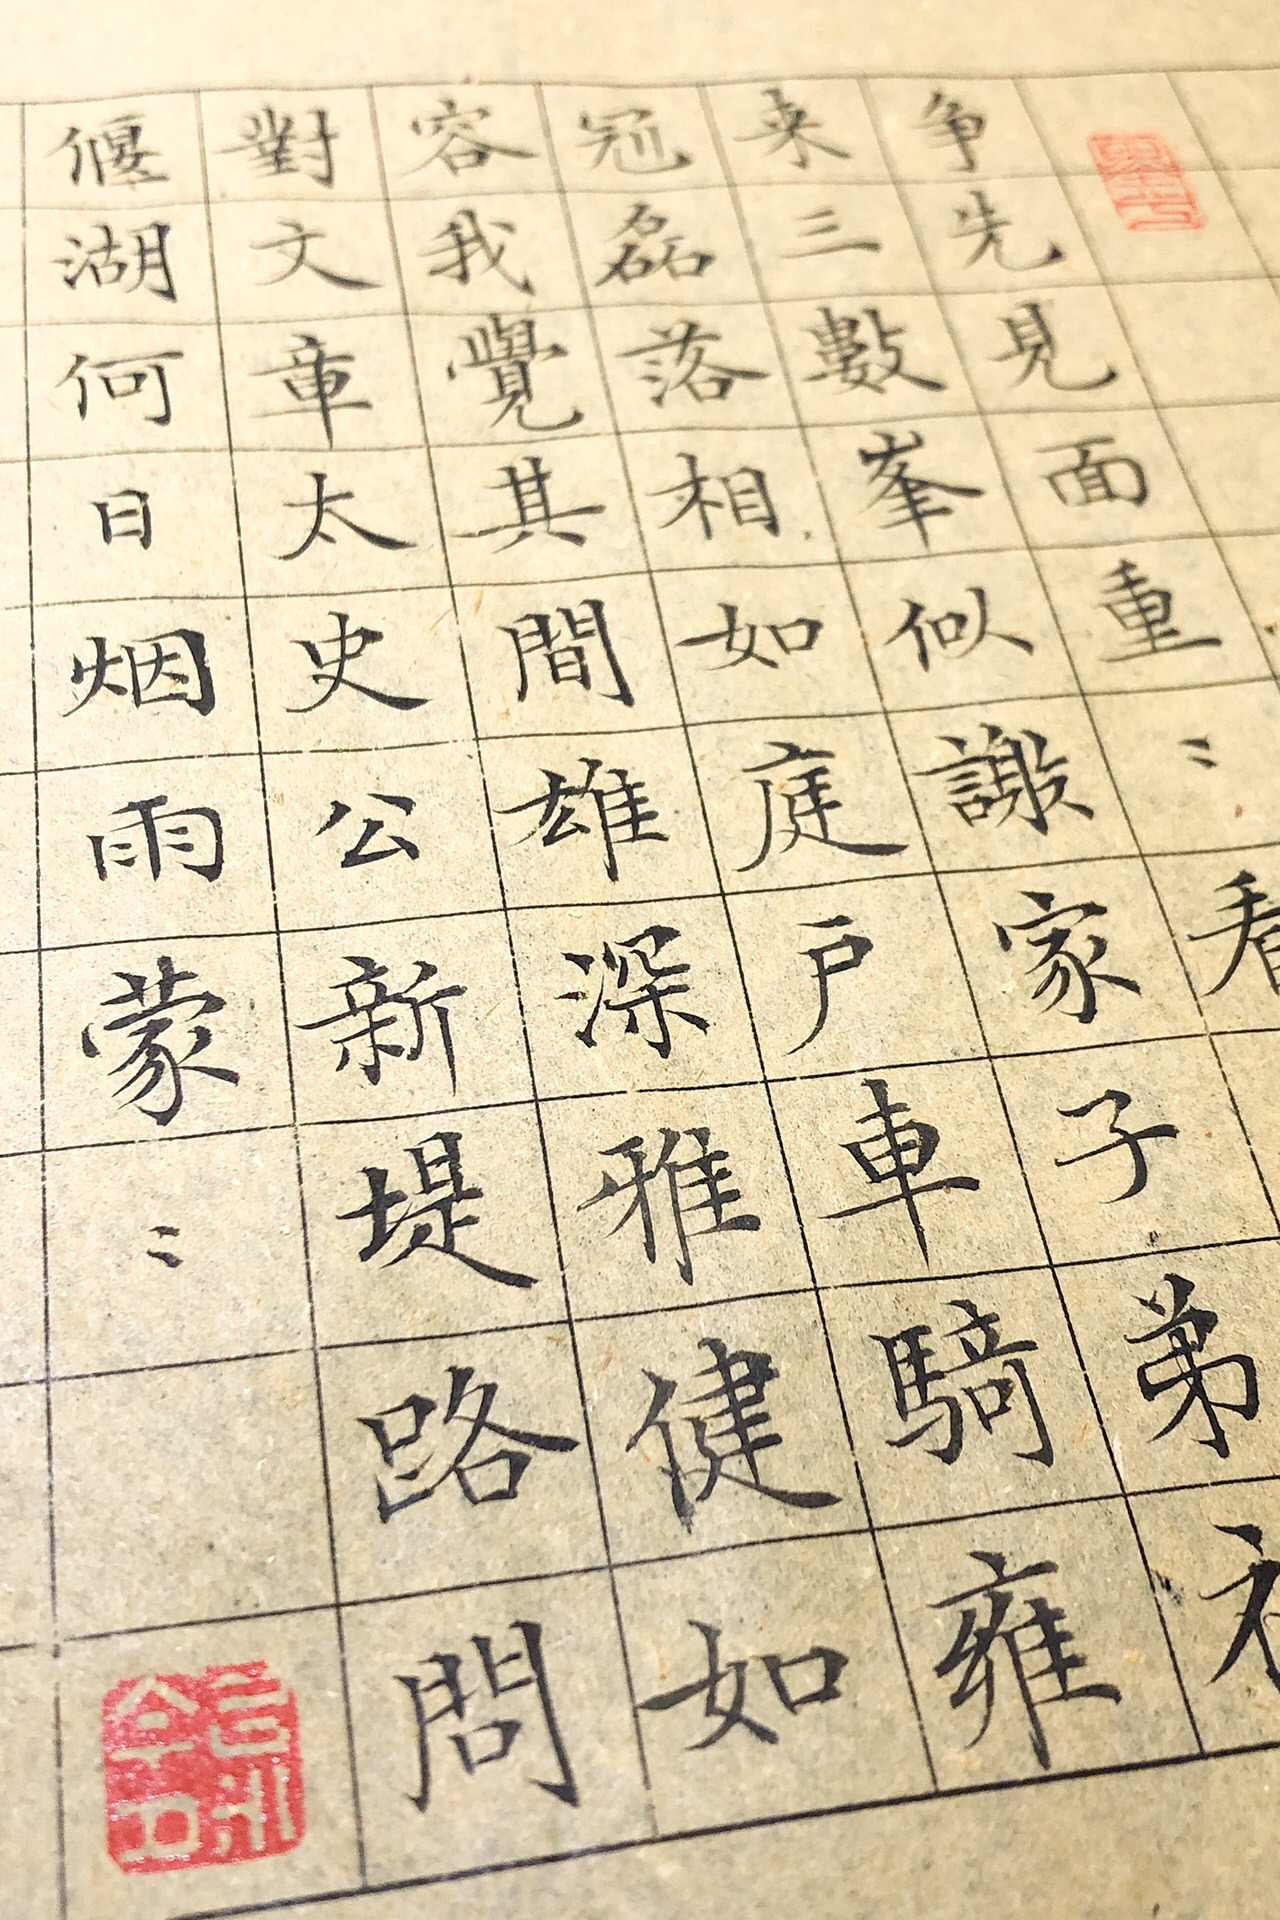 争先見面重〻看
来三數峯似謝家子弟衣
冠磊落相如庭户車騎雍
容我覺其間雄深雅健如
對文章太史公新堤路問
偃湖何日烟雨蒙〻